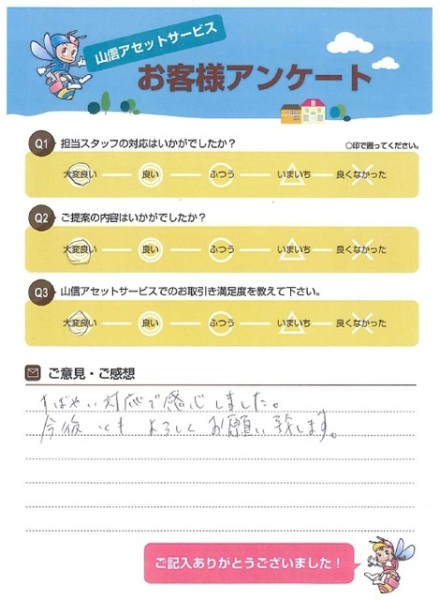 山信アセットサービス
お客様アンケート
Q1 担当スタッフの対応はいかがでしたか？
○印で囲ってください。
大変良い 良い ふつう いまいち 良くなかった
Q2 ご提案の内容はいかがでしたか？
大変良い 良い ふつう いまいち 良くなかった
Q3 山信アセットサービスでのお取引き満足度を教えて下さい。
大変良い 良い ふつう いまいち 良くなかった
ご意見・ご感想
すばやい対応で感心しました。
今後とも よろしく お願い致します。
ご記入ありがとうございました！